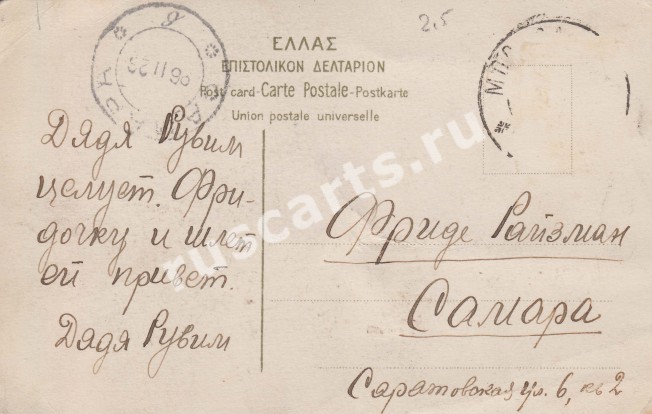 2,5
ΕΛΛΑΣ
ΕΠΙΣΤΟΛΙΚΟΝ ΔΕΛΤΑΡΙΟΝ
Post card-Carte Postale-Postkarte
Union postale universelle
Дядя Рувим
целует Фри-
дочку и шлет
ей привет.
Дядя Рувим
Фриде Райзман
Самара
Саратовская ул. 6, кв 2
ruscarts.ru